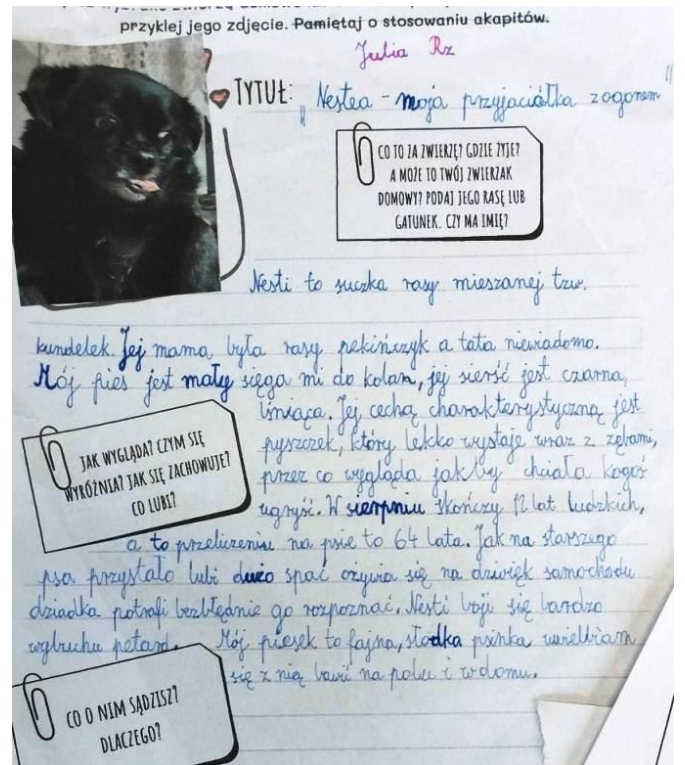 przyklej jego zdjęcie. Pamiętaj o stosowaniu akapitów.
Julia Rz
TYTUŁ: „Nestea - moja przyjaciółka z ogonem"
CO TO ZA ZWIERZĘ? GDZIE ŻYJE?
A MOŻE TO TWÓJ ZWIERZAK
DOMOWY? PODAJ JEGO RASĘ LUB
GATUNEK. CZY MA IMIĘ?
Nesti to suczka rasy mieszanej tzw.
kundelek. Jej mama była rasy pekińczyk a tata niewiadomo.
Mój pies jest mały sięga mi do kolan, jej sierść jest czarna,
lśniąca. Jej cechą charakterystyczną jest
pyszczek, który lekko wystaje wraz z zębami,
przez co wygląda jakby chciała kogoś
ugryść. W sierpniu skończy 12 lat ludzkich,
JAK WYGLĄDA? CZYM SIĘ
WYRÓŻNIA? JAK SIĘ ZACHOWUJE?
CO LUBI?
a to przeliczeniu na psie to 64 lata. Jak na starszego
psa przystało lubi dużo spać ożywia się na dźwięk samochodu
dziadka potrafi bezbłędnie go rozpoznać. Nesti boji się bardzo
wybuchu petard. Mój piesek to fajna, słodka psinka uwielbiam
się z nią bawić na polu i w domu.
CO O NIM SĄDZISZ?
DLACZEGO?